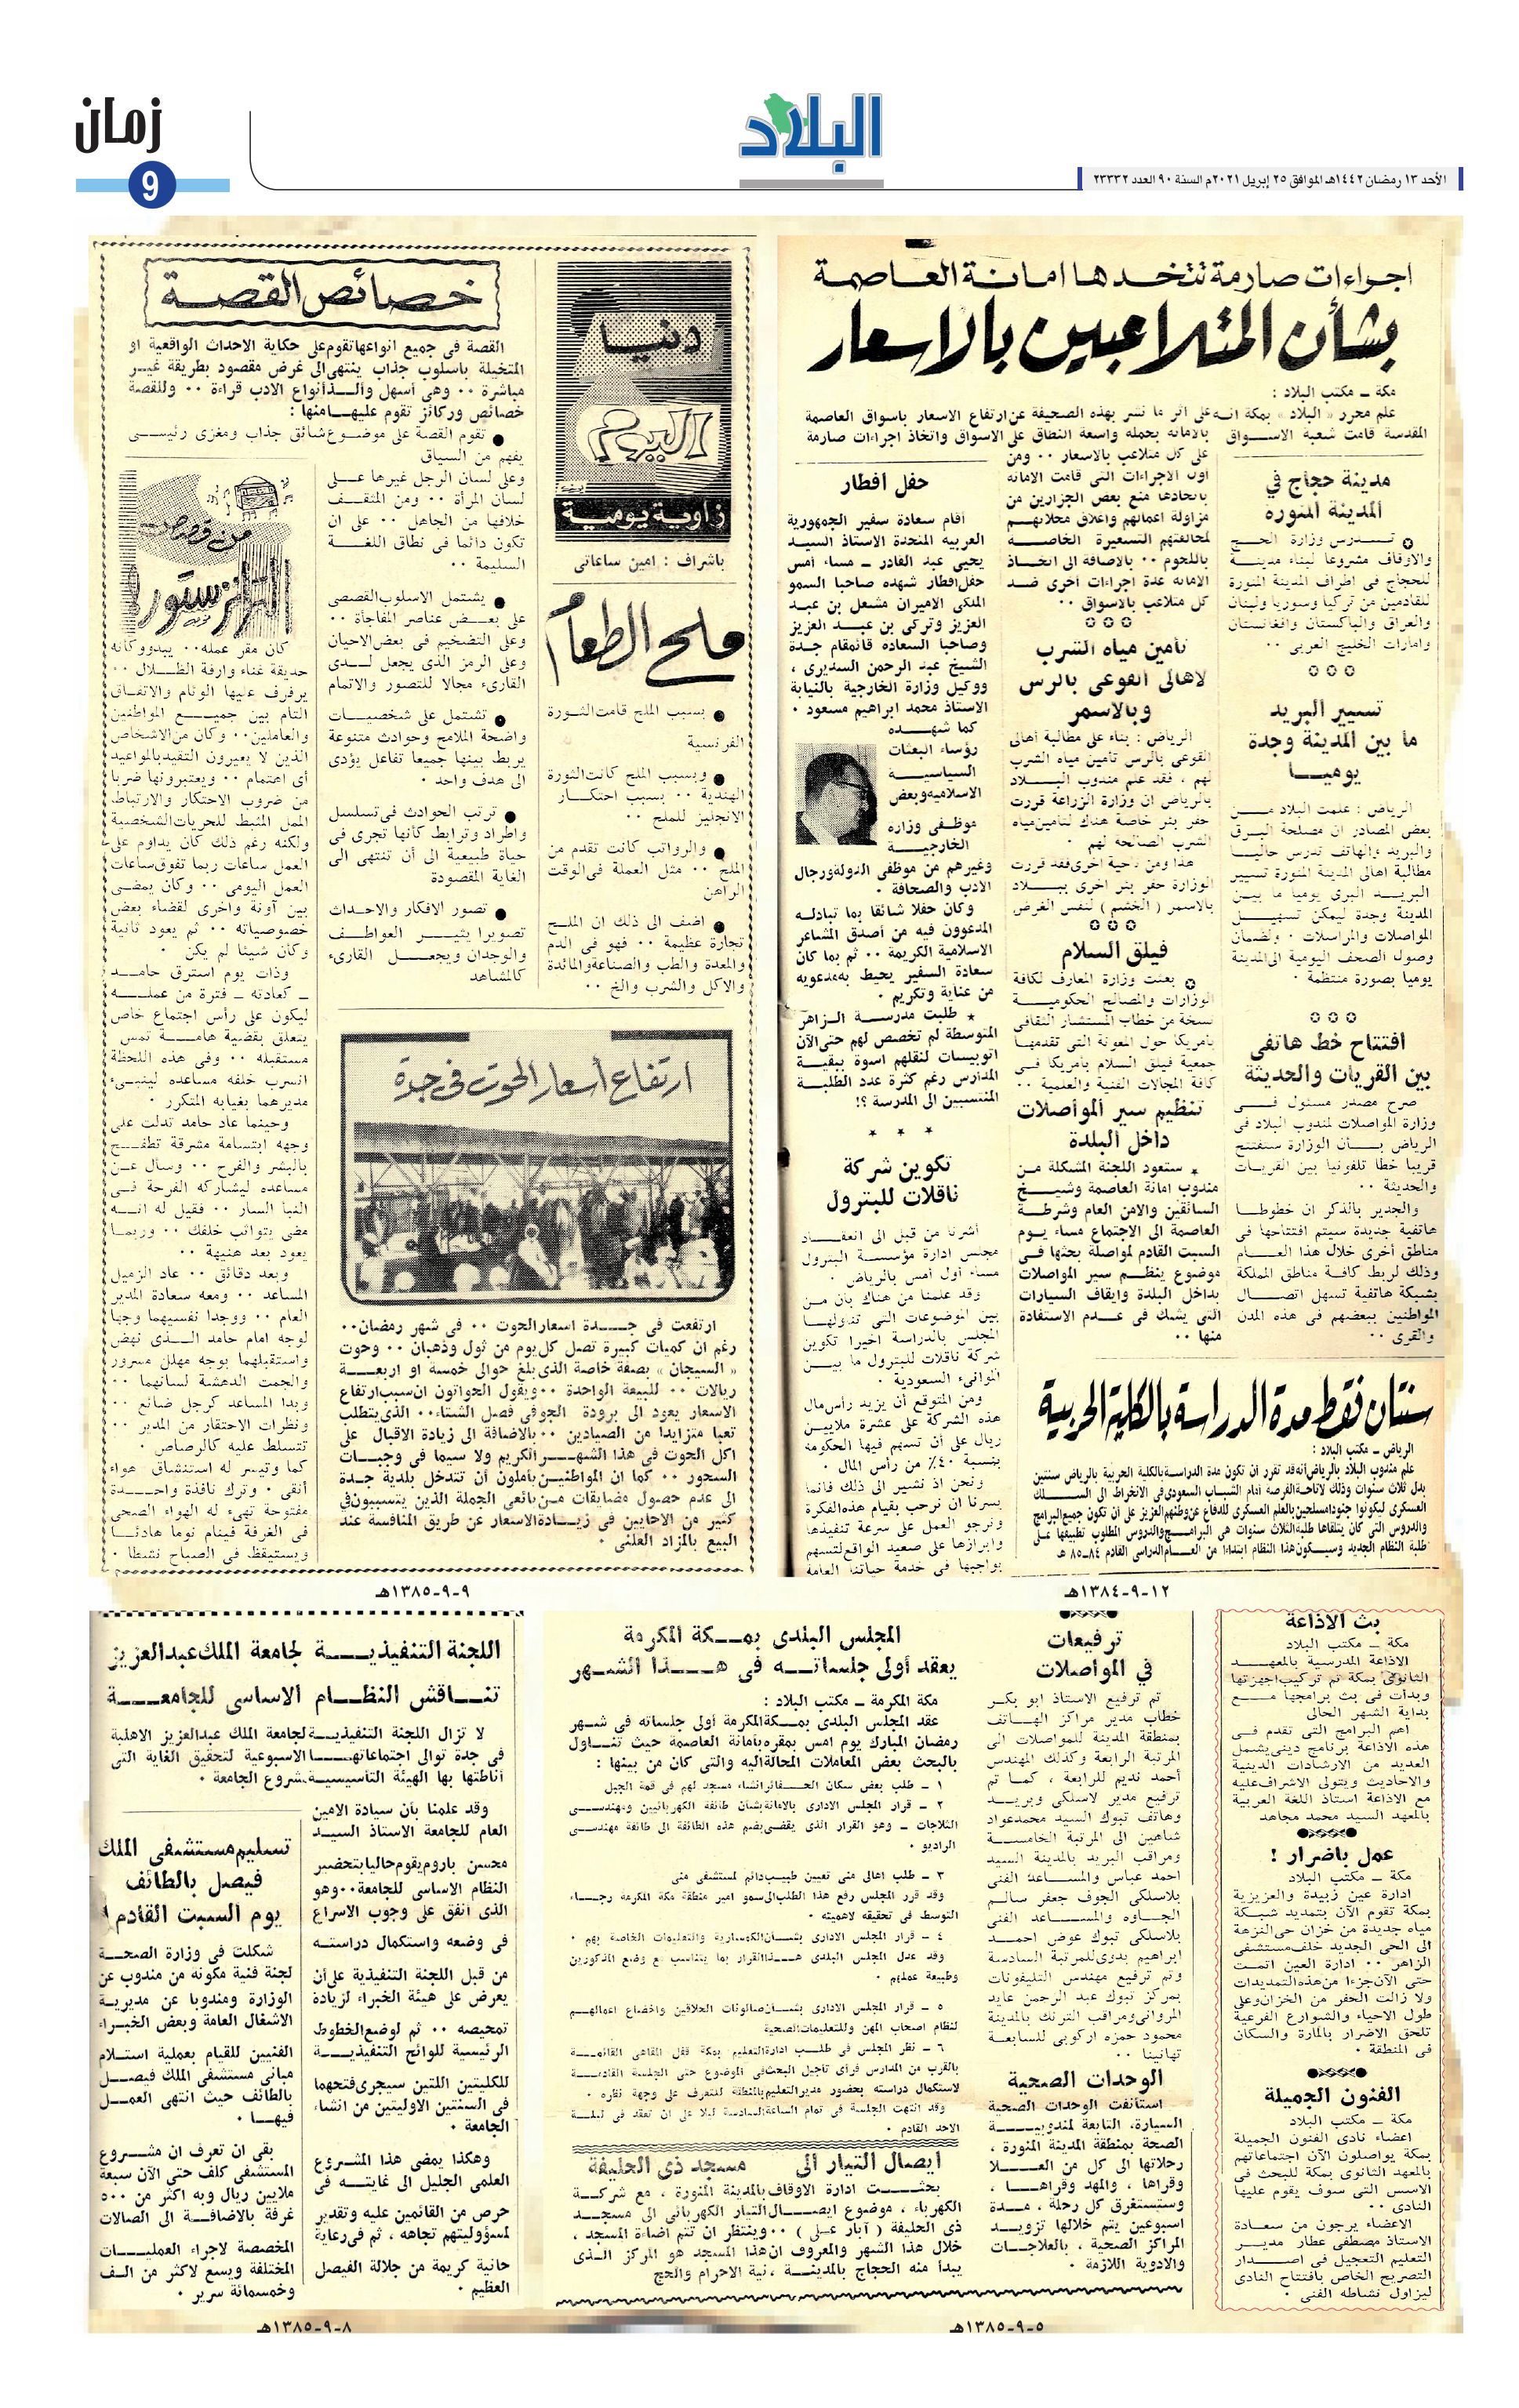 زمان
9
البلاد
الأحد ١٣ رمضان ١٤٤٢هـ الموافق ٢٥ إبريل ٢٠٢١م السنة ٩٠ العدد ٢٣٣٣٢
اجراءات صارمة تتخدها امانة العاصمة
بشأن المتلاعبين بالاسعار
مكة ــ مكتب البلاد :
علم محرر « البلاد » بمكة انه على اثر ما نشر بهذه الصحيفة عن ارتفاع الاسعار باسواق العاصمة
المقدسة قامت شعبة الاسواق بالامانه بحمله واسعة النطاق على الاسواق واتخاذ اجراءات صارمة
على كل متلاعب بالاسعار ٠٠ ومن
اول الاجراءات التى قامت الامانه
باتخاذها منع بعض الجزارين من
مزاولة اعمالهم واغلاق محلاتهم
لمخالفتهم التسعيرة الخاصه
باللحوم ٠٠ بالاضافة الى اتخاذ
الامانه عدة اجراءات أخرى ضد
كل متلاعب بالاسواق ٠٠
مدينة حجاج في
المدينة المنورة
تدرس وزارة الحج
والاوقاف مشروعا لبناء مدينة
للحجاج فى اطراف المدينة المنورة
للقادمين من تركيا وسوريا ولبنان
والعراق والباكستان وافغانستان
وامارات الخليج العربى ٠٠
تسيير البريد
ما بين المدينة وجدة
يوميا
الرياض : علمت البلاد من
بعض المصادر ان مصلحة البرق
والبريد والهاتف تدرس حاليا
مطالبة اهالى المدينة المنورة تسيير
البريد البرى يوميا ما بين
المدينة وجدة ليمكن تسهيل
المواصلات والمراسلات ٠ ولضمان
وصول الصحف اليومية الى المدينة
يوميا بصورة منتظمة ٠
افتتاح خط هاتفى
بين القريات والحديثة
صرح مصدر مسئول فى
وزارة المواصلات لمندوب البلاد فى
الرياض بأن الوزارة ستفتتح
قريبا خطا تلفونيا بين القريات
والحديثة ٠٠
والجدير بالذكر ان خطوطا
هاتفية جديدة سيتم افتتاحها فى
مناطق أخرى خلال هذا العام
وذلك لربط كافة مناطق المملكة
بشبكة هاتفية تسهل اتصال
المواطنين ببعضهم فى هذه المدن
والقرى ٠٠
تأمين مياه الشرب
لاهالى القوعى بالرس
وبالاسمر
الرياض : بناء على مطالبة أهالى
القوعى بالرس تأمين مياه الشرب
لهم ، فقد علم مندوب البلاد
بالرياض ان وزارة الزراعة قررت
حفر بئر خاصة هناك لتأمين مياه
الشرب الصالحة لهم ٠
هذا ومن ناحية اخرى فقد قررت
الوزارة حفر بئر اخرى ببلاد
بالاسمر ( الخثيم ) لنفس الغرض
فيلق السلام
بعثت وزارة المعارف لكافة
الوزارات والمصالح الحكومية
نسخة من خطاب المستشار الثقافى
بأمريكا حول المعونة التى تقدمها
جمعية فيلق السلام بامريكا فى
كافة المجالات الفنية والعلمية ٠٠
تنظيم سير المواصلات
داخل البلدة
٭ ستعود اللجنة المشكلة من
مندوب امانة العاصمة وشيخ
السائقين والامن العام وشرطة
العاصمة الى الاجتماع مساء يوم
السبت القادم لمواصلة بحثها فى
موضوع ينظم سير المواصلات
بداخل البلدة وايقاف السيارات
التى يشك فى عدم الاستفادة
منها ٠٠
حفل افطار
أقام سعادة سفير الجمهورية
العربيه المتحدة الاستاذ السيد
يحيى عبد القادر ــ مساء أمس
حفل افطار شهده صاحبا السمو
الملكى الاميران مشعل بن عبد
العزيز وتركى بن عبد العزيز
وصاحبا السعاده قائمقام جدة
الشيخ عبد الرحمن السديرى ،
ووكيل وزارة الخارجية بالنيابة
الاستاذ محمد ابراهيم مسعود ٠
كما شهده
رؤساء البعثات
السياسية
الاسلاميه وبعض
موظفى وزاره
الخارجية
وغيرهم من موظفى الدولة ورجال
الادب والصحافة ٠
وكان حفلا شائقا بما تبادله
المدعوون فيه من أصدق المشاعر
الاسلامية الكريمة ٠٠ ثم بما كان
سعادة السفير يحيط به مدعويه
من عناية وتكريم ٠
٭ طلبت مدرسة الزاهر
المتوسطة لم تخصص لهم حتى الآن
اتوبيسات لنقلهم اسوة ببقية
المدارس رغم كثرة عدد الطلبة
المنتسبين الى المدرسة ؟!
٭ ٭ ٭
تكوين شركة
ناقلات للبترول
أشرنا من قبل الى انعقاد
مجلس ادارة مؤسسة البترول
مساء أول أمس بالرياض ٠
وقد علمنا من هناك بأن من
بين الموضوعات التى تداولها
المجلس بالدراسة اخيرا تكوين
شركة ناقلات للبترول ما بين
الموانىء السعودية ٠
ومن المتوقع أن يزيد رأس مال
هذه الشركة على عشرة ملايين
ريال على أن تسهم فيها الحكومه
بنسبة ٤٠٪ من رأس المال ٠
ونحن اذ نشير الى ذلك فانما
يسرنا ان نرحب بقيام هذه الفكرة
ونرجو العمل على سرعة تنفيذها
وابرازها على صعيد الواقع لتسهم
بواجبها فى خدمة حياتنا العامة
سنتان فقط مدة الدراسة بالكلية الحربية
الرياض ــ مكتب البلاد :
علم مندوب البلاد بالرياض أنه قد تقرر ان تكون مدة الدراسة بالكلية الحربية بالرياض سنتين
بدل ثلاث سنوات وذلك لاتاحة الفرصة أمام الشباب السعودى فى الانخراط الى السلك
العسكرى ليكونوا جنودا مسلحين بالعلم العسكرى للدفاع عن وطنهم العزيز على ان تكون جميع البرامج
والدروس التى كان يتلقاها طلبة الثلاث سنوات هى البرامج والدروس المطلوب تطبيقها على
طلبة النظام الجديد وسيكون هذا النظام ابتداءا من العام الدراسى القادم ٨٤ــ٨٥ هـ
١٢-٩-١٣٨٤هـ
دنيا
اليوم
زاوية يومية
باشراف : امين ساعاتى
ملح الطعام
● بسبب الملح قامت الثورة
الفرنسية
● وبسبب الملح كانت الثورة
الهندية ٠٠ بسبب احتكار
الانجليز للملح ٠٠
● والرواتب كانت تقدم من
الملح ٠٠ مثل العملة فى الوقت
الراهن
● اضف الى ذلك ان الملح
تجارة عظيمة ٠٠ فهو فى الدم
والمعدة والطب والصناعة والمائدة
والاكل والشرب والخ ٠٠
خصائص القصة
القصة فى جميع انواعها تقوم على حكاية الاحداث الواقعية او
المتخيلة باسلوب جذاب ينتهى الى غرض مقصود بطريقة غير
مباشرة ٠٠ وهى أسهل والذ أنواع الادب قراءة ٠٠ وللقصة
خصائص وركائز تقوم عليها منها :
● تقوم القصة على موضوع شائق جذاب ومغزى رئيسى
يفهم من السياق
وعلى لسان الرجل غيرها على
لسان المرأة ٠٠ ومن المثقف
خلافها من الجاهل ٠٠ على ان
تكون دائما فى نطاق اللغة
السليمة ٠٠
● يشتمل الاسلوب القصصى
على بعض عناصر المفاجأة ٠٠
وعلى التضخيم فى بعض الاحيان
وعلى الرمز الذى يجعل لدى
القارىء مجالا للتصور والاتمام
● تشتمل على شخصيات
واضحة الملامح وحوادث متنوعة
يربط بينها جميعا تفاعل يؤدى
الى هدف واحد ٠
● ترتب الحوادث فى تسلسل
واطراد وترابط كأنها تجرى فى
حياة طبيعية الى أن تنتهى الى
الغاية المقصودة
● تصور الافكار والاحداث
تصويرا يثير العواطف
والوجدان ويجعل القارىء
كالمشاهد
من قصص
الترانزستور
كان مقر عمله ٠٠ يبدو وكأنه
حديقة غناء وارفة الظلال ٠٠
يرفرف عليها الوئام والاتفاق
التام بين جميع المواطنين
والعاملين ٠٠ وكان من الاشخاص
الذين لا يعيرون التقيد بالمواعيد
أى اهتمام ٠٠ ويعتبرونها ضربا
من ضروب الاحتكار والارتباط
الممل المثبط للحريات الشخصية
ولكنه رغم ذلك كان يداوم على
العمل ساعات ربما تفوق ساعات
العمل اليومى ٠٠ وكان يمضى
بين آونة واخرى لقضاء بعض
خصوصياته ٠٠ ثم يعود ثانية
وكأن شيئا لم يكن ٠
وذات يوم استرق حامد
ــ كعادته ــ فترة من عمله
ليكون على رأس اجتماع خاص
يتعلق بقضية هامة تمس
مستقبله ٠٠ وفى هذه اللحظة
انسرب خلفه مساعده لينبىء
مديرهما بغيابه المتكرر ٠
وحينما عاد حامد تدلت على
وجهه ابتسامة مشرقة تطفح
بالبشر والفرح ٠٠ وسأل عن
مساعده ليشاركه الفرحة فى
النبأ السار ٠٠ فقيل له انه
مضى يتواثب خلفك ٠٠ وربما
يعود بعد هنيهة ٠٠
وبعد دقائق ٠٠ عاد الزميل
المساعد ٠٠ ومعه سعادة المدير
العام ٠٠ ووجدا نفسيهما وجها
لوجه امام حامد الذى نهض
واستقبلهما بوجه مهلل مسرور
والجمت الدهشة لسانهما ٠٠
وبدا المساعد كرجل ضائع ٠٠
ونظرات الاحتقار من المدير ٠٠
تتسلط عليه كالرصاص ٠
كما وتيسر له استنشاق هواء
أنقى ٠ وترك نافذة واحدة
مفتوحة تهىء له الهواء الصحى
فى الغرفة فينام نوما هادئا
ويستيقظ فى الصباح نشطا ٠
ارتفاع أسعار الحوت فى جدة
ارتفعت فى جدة اسعار الحوت ٠٠ فى شهر رمضان ٠٠
رغم ان كميات كبيرة تصل كل يوم من ثول وذهبان ٠٠ وحوت
« السيجان » بصفة خاصة الذى بلغ حوالى خمسة او اربعة
ريالات ٠٠ للبيعة الواحدة ٠٠ ويقول الحواتون ان سبب ارتفاع
الاسعار يعود الى برودة الجو فى فصل الشتاء ٠٠ الذى يتطلب
تعبا متزايدا من الصيادين ٠٠ بالاضافة الى زيادة الاقبال على
اكل الحوت فى هذا الشهر الكريم ولا سيما فى وجبات
السحور ٠٠ كما ان المواطنين يأملون أن تتدخل بلدية جدة
الى عدم حصول مضايقات من بائعى الجملة الذين يتسببون فى
كثير من الاحايين فى زيادة الاسعار عن طريق المنافسة عند
البيع بالمزاد العلنى ٠
٩-٩-١٣٨٥هـ
بث الاذاعة
مكة ــ مكتب البلاد
الاذاعة المدرسية بالمعهد
الثانوى بمكة تم تركيب اجهزتها
وبدأت فى بث برامجها مع
بداية الشهر الحالى
اهم البرامج التى تقدم فى
هذه الاذاعة برنامج دينى يشمل
العديد من الارشادات الدينية
والاحاديث ويتولى الاشراف عليه
مع الاذاعة استاذ اللغة العربية
بالمعهد السيد محمد مجاهد
عمل باضرار !
مكة ــ مكتب البلاد
ادارة عين زبيدة والعزيزية
بمكة تقوم الآن بتمديد شبكة
مياه جديدة من خزان حى النزهة
الى الحى الجديد خلف مستشفى
الزاهر ٠٠ ادارة العين اتمت
حتى الآن جزءا من هذه التمديدات
ولا زالت الحفر من الخزان وعلى
طول الاحياء والشوارع الفرعية
تلحق الاضرار بالمارة والسكان
فى المنطقة ٠
الفنون الجميلة
مكة ــ مكتب البلاد
اعضاء نادى الفنون الجميلة
بمكة يواصلون الآن اجتماعاتهم
بالمعهد الثانوى بمكة للبحث فى
الاسس التى سوف يقوم عليها
النادى ٠٠
الاعضاء يرجون من سعادة
الاستاذ مصطفى عطار مدير
التعليم التعجيل فى اصدار
التصريح الخاص بافتتاح النادى
ليزاول نشاطه الفنى ٠
ترفيعات
في المواصلات
تم ترفيع الاستاذ ابو بكر
خطاب مدير مراكز الهاتف
بمنطقة المدينة للمواصلات الى
المرتبة الرابعة وكذلك المهندس
أحمد نديم للرابعة ، كما تم
ترفيع مدير لاسلكى وبريد
وهاتف تبوك السيد محمد عواد
شاهين الى المرتبة الخامسة
ومراقب البريد بالمدينة السيد
احمد عباس والمساعد الفنى
بلاسلكى الجوف جعفر سالم
الجاوه والمساعد الفنى
بلاسلكى تبوك عوض احمد
ابراهيم بدوى للمرتبة السادسة
وتم ترفيع مهندس التليفونات
بمركز تبوك عبد الرحمن عايد
المروانى ومراقب الترنك بالمدينة
محمود حمزه اركوبى للسابعة
تهانينا ٠٠
الوحدات الصحية
استأنفت الوحدات الصحية
السيارة، التابعة لمندوبية
الصحة بمنطقة المدينة المنورة ،
رحلاتها الى كل من العلا
وقراها ، والمهد وقراها ،
وستستغرق كل رحلة ، مدة
اسبوعين يتم خلالها تزويد
المراكز الصحية ، بالعلاجات
والادوية اللازمة ٠
المجلس البلدى بمكة المكرمة
يعقد أولى جلساته فى هذا الشهر
مكة المكرمة ــ مكتب البلاد :
عقد المجلس البلدى بمكة المكرمة أولى جلساته فى شهر
رمضان المبارك يوم امس بمقره بأمانة العاصمة حيث تناول
بالبحث بعض المعاملات المحالة اليه والتى كان من بينها :
١ ــ طلب بعض سكان الحفائر انشاء مسجد لهم فى قمة الجبل
٢ ــ قرار المجلس الادارى بالامانة بشأن طائفة الكهربائيين ومهندسى
الثلاجات ــ وهو القرار الذى يقضى بضم هذه الطائفة الى طائفة مهندسى
الراديو ٠
٣ ــ طلب اهالى منى تعيين طبيب دائم لمستشفى منى
وقد قرر المجلس رفع هذا الطلب الى سمو امير منطقة مكة المكرمة رجاء
التوسط فى تحقيقه لاهميته ٠
٤ ــ قرار المجلس الادارى بشأن الكمسارية والتعليمات الخاصة بهم ٠
وقد عدل المجلس البلدى هذا القرار بما يتناسب مع وضع المذكورين
وطبيعة عملهم ٠
٥ ــ قرار المجلس الادارى بشأن صالونات الحلاقين واخضاع اعمالهم
لنظام اصحاب المهن وللتعليمات الصحية
٦ ــ نظر المجلس فى طلب ادارة التعليم بمكة قفل المقاهى القائمة
بالقرب من المدارس فرأى تأجيل البحث فى الموضوع حتى الجلسة القادمة
لاستكمال دراسته بحضور مدير التعليم بالمنطقة للتعرف على وجهة نظره ٠
وقد انتهت الجلسة فى تمام الساعة السادسة ليلا على ان تعقد فى ليلة
الاحد القادم ٠
ايصال التيار الى مسجد ذى الحليفة
بحثت ادارة الاوقاف بالمدينة المنورة ، مع شركة
الكهرباء ، موضوع ايصال التيار الكهربائى الى مسجد
ذى الحليفة ( آبار على ) ٠٠ وينتظر ان تتم اضاءة المسجد ،
خلال هذا الشهر والمعروف ان هذا المسجد هو المركز الذى
يبدأ منه الحجاج بالمدينة ، نية الاحرام والحج
٥-٩-١٣٨٥هـ
اللجنة التنفيذية لجامعة الملك عبدالعزيز
تناقش النظام الاساسى للجامعة
لا تزال اللجنة التنفيذية لجامعة الملك عبدالعزيز الاهلية
فى جدة توالى اجتماعاتها الاسبوعية لتحقيق الغاية التى
أناطتها بها الهيئة التأسيسية لمشروع الجامعة ٠
وقد علمنا بأن سيادة الامين
العام للجامعة الاستاذ السيد
محسن باروم يقوم حاليا بتحضير
النظام الاساسى للجامعة ٠٠ وهو
الذى اتفق على وجوب الاسراع
فى وضعه واستكمال دراسته
من قبل اللجنة التنفيذية على أن
يعرض على هيئة الخبراء لزيادة
تمحيصه ٠٠ ثم لوضع الخطوط
الرئيسية للوائح التنفيذية
للكليتين اللتين سيجرى فتحهما
فى السنتين الاوليتين من انشاء
الجامعة ٠
وهكذا يمضى هذا المشروع
العلمى الجليل الى غايته فى
حرص من القائمين عليه وتقدير
لمسؤوليتهم تجاهه ، ثم فى رعاية
حانية كريمة من جلالة الفيصل
العظيم ٠
تسليم مستشفى الملك
فيصل بالطائف
يوم السبت القادم
شكلت فى وزارة الصحة
لجنة فنية مكونه من مندوب عن
الوزارة ومندوبا عن مديرية
الاشغال العامة وبعض الخبراء
الفنيين للقيام بعملية استلام
مبانى مستشفى الملك فيصل
بالطائف حيث انتهى العمل
فيها ٠
بقى ان تعرف ان مشروع
المستشفى كلف حتى الآن سبعة
ملايين ريال وبه اكثر من ٥٠٠
غرفة بالاضافة الى الصالات
المخصصة لاجراء العمليات
المختلفة ويسع لاكثر من الف
وخمسمائة سرير ٠
٨-٩-١٣٨٥هـ